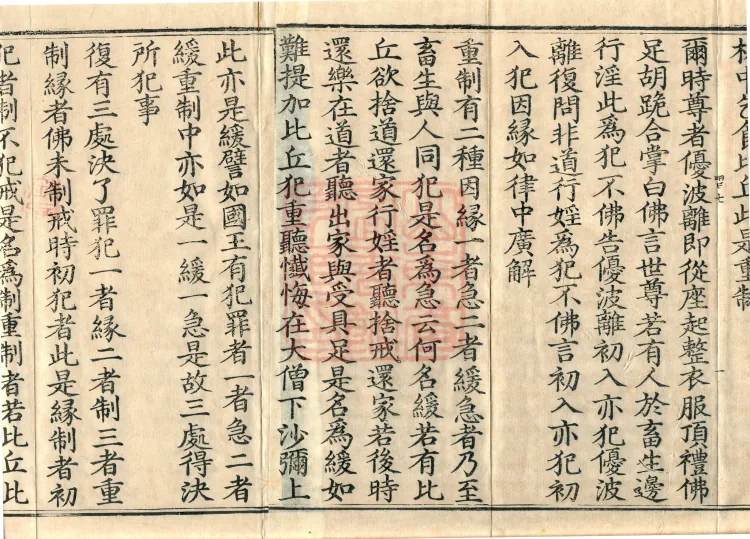 林中乞食比丘此是重制
爾時尊者優波離即從座起整衣服頂禮佛
足胡跪合掌白佛言世尊若有人於畜生邊
行淫此爲犯不佛告優波離初入亦犯優波
離復問非道行婬爲犯不佛言初入亦犯初
入犯因緣如律中廣解
重制有二種因緣一者急二者緩急者乃至
畜生與人同犯是名爲急云何名緩若有比
丘欲捨道還家行婬者聽捨戒還家若後時
還樂在道者聽出家與受具足是名爲緩如
難提加比丘犯重聽懺悔在大僧下沙彌上
此亦是緩譬如國王有犯罪者一者急二者
緩重制中亦如是一緩一急是故三處得決
所犯事
復有三處決了罪犯一者緣二者制三者重
制緣者佛未制戒時初犯者此是緣制者初
犯者制不犯戒是名爲制重制者若比丘比